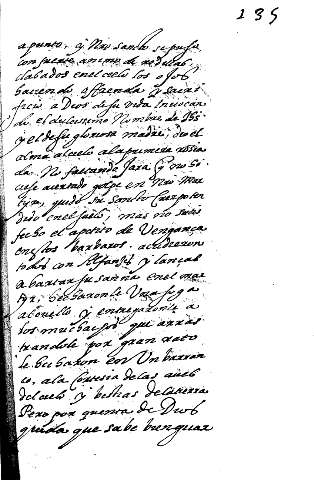 135
a punto, y Nro sancto se puso
con fuerte animo de rodillas
clabados en el cielo los ojos
haciendo offrenda y sacri
ficio a Dios de su vida invocan
do el dulcissimo Nombre de Jhs
y el de su gloriosa madre, dio el
alma al cielo a la primera
da. No faltando Jara q no hi
ciese acertado golpe en Nro Mar
tir, quedo su sancto Cuerpo ten
dido en el suelo, mas no satis
fecho el apetito de Vengança
en estos barbaros. acudieron
todos con Alfanjes y lanças
a hartar su saña en el mar
tyr, hecharonle Una soga
al cuello y entregaronle a
los muchachos que arras
trandole por gran rato
le hecharon en Un barran
co, a la Cortesia de las aues
del cielo y bestias de la tierra
Pero por quenta de Dios
queda que sabe bien guar